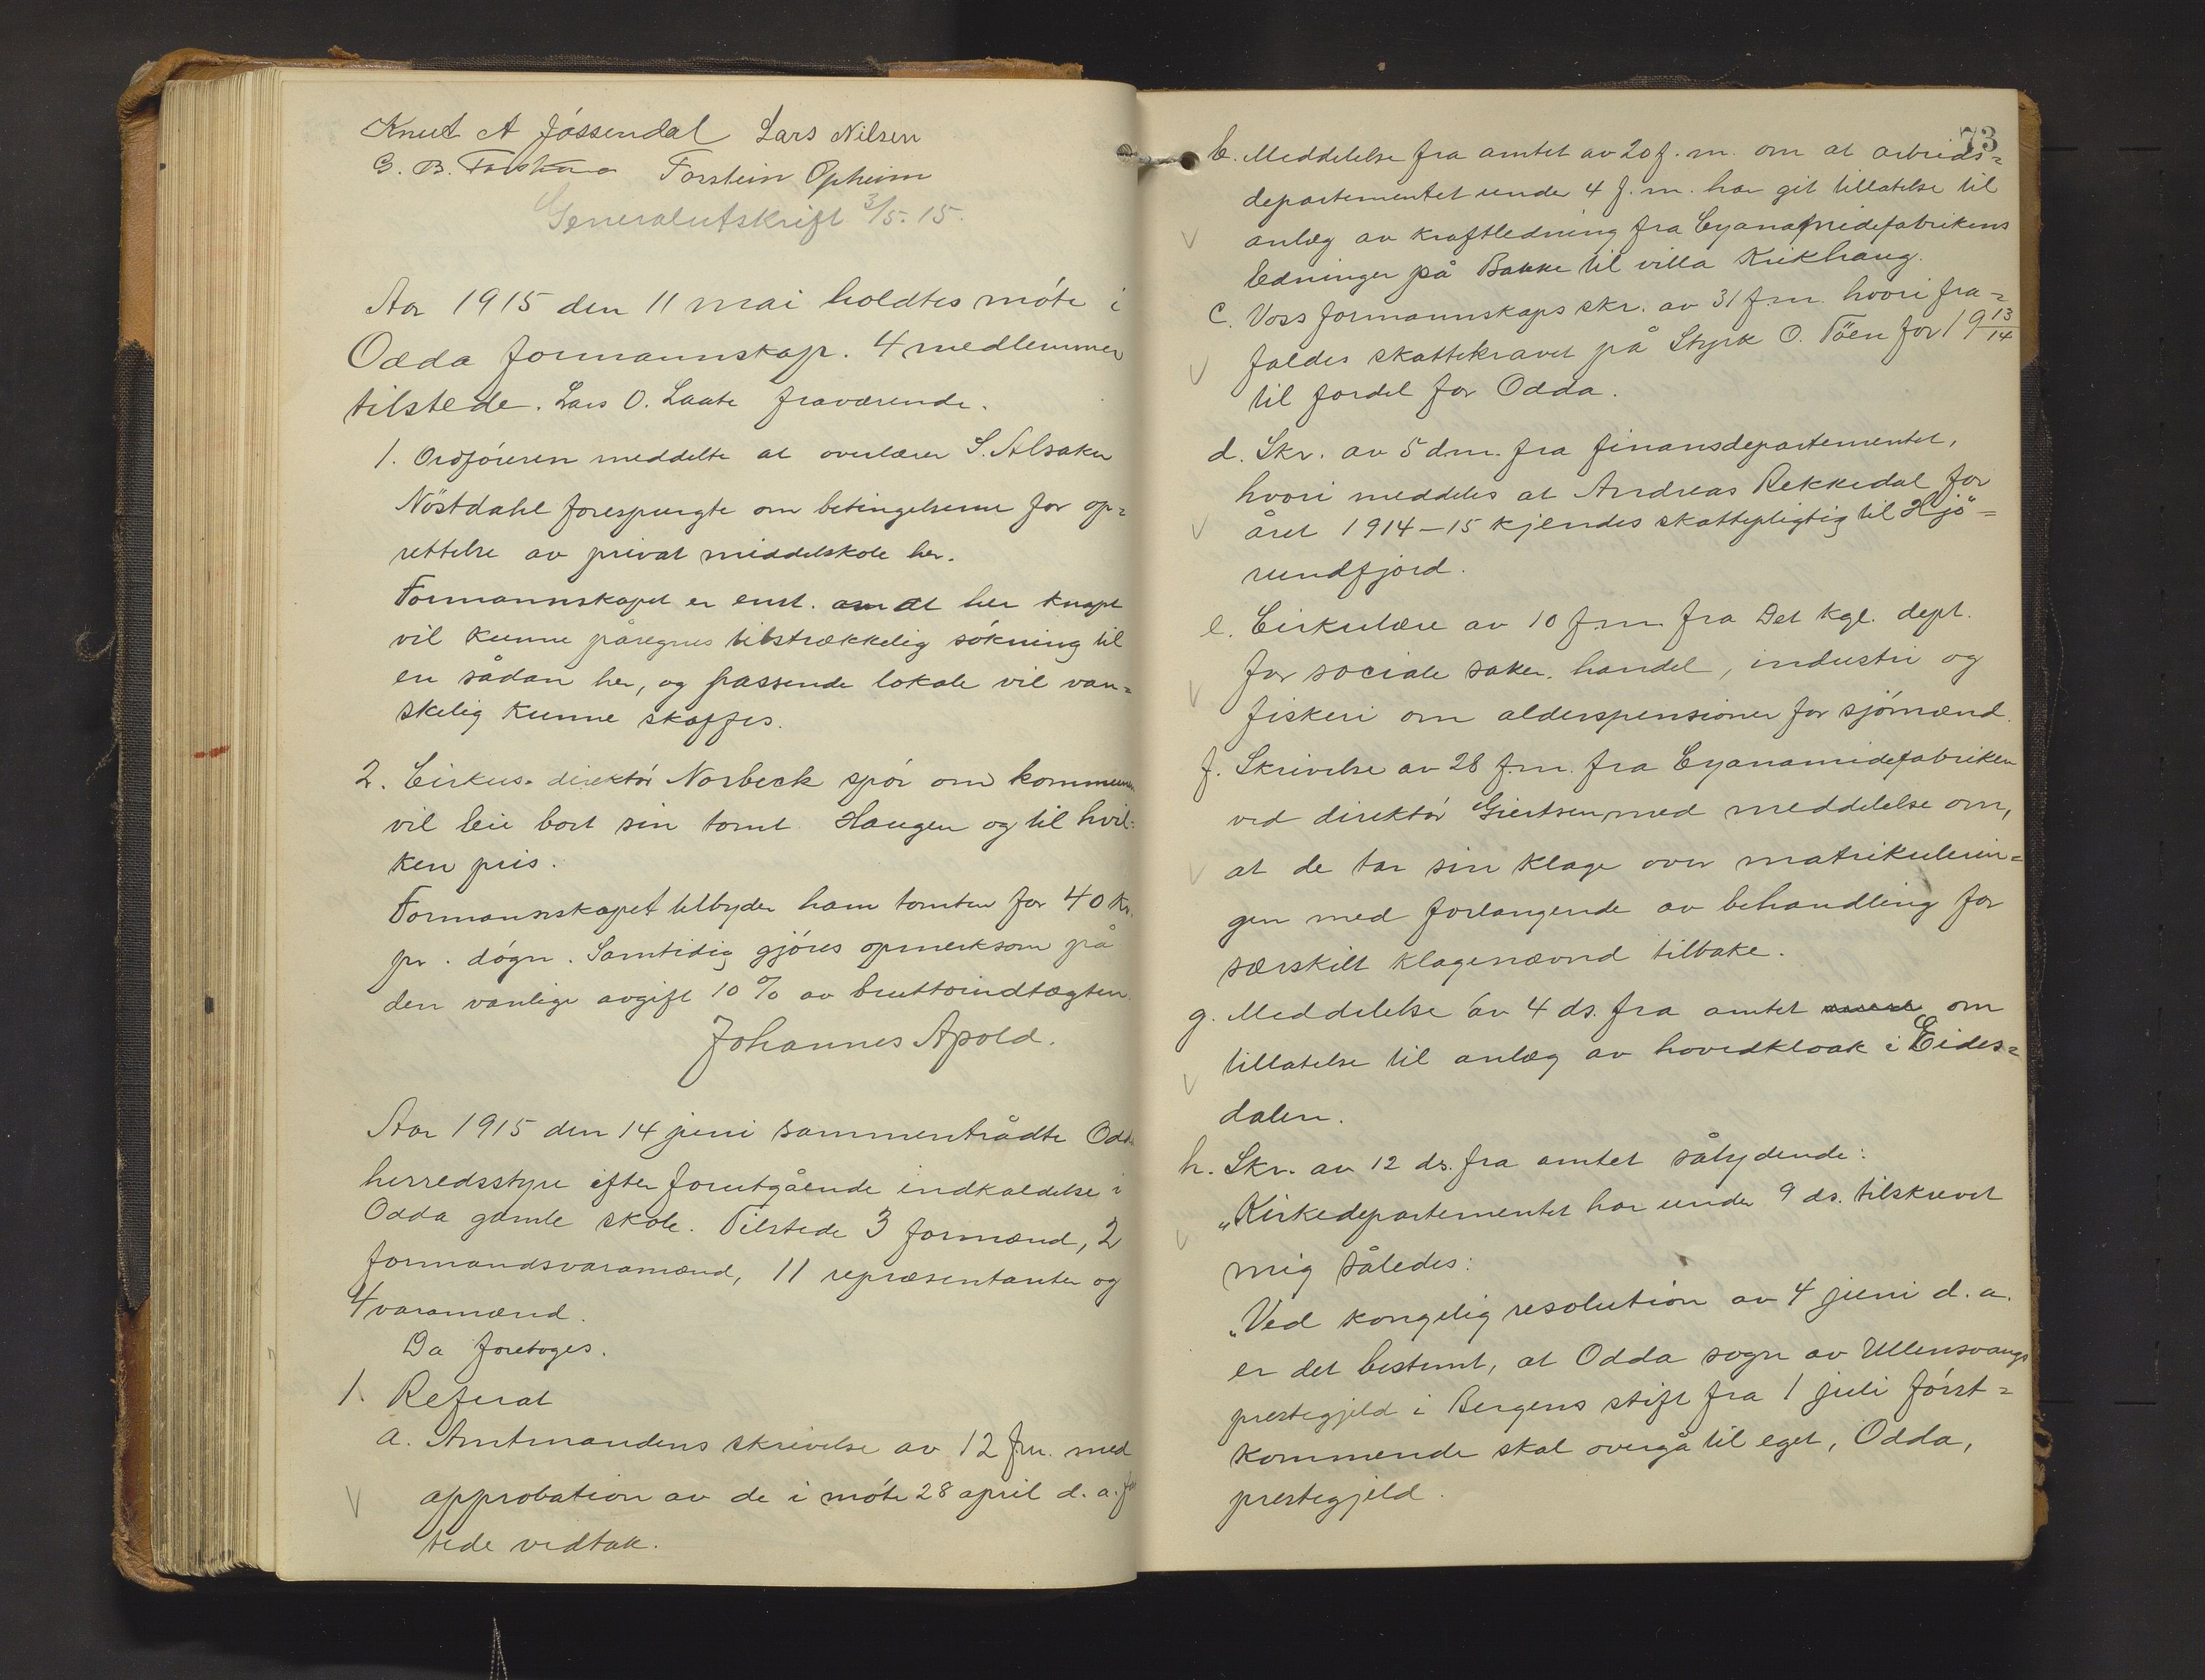 Knut A Jøssendal Lars Nilsen
G. B. Torstein Opheim
Generalutskrift 3/5. 15.
Aar 1915 den 11 mai holdtes møte i
Odda formannskap. 4 medlemmer
tilstede. Lars O. Laate fraværende.
1. Ordføreren meddelte at overlærer S. Alsaker
Nöstdahl forespurgte om betingelserne for op=
rettelse av privat middelskole her.
Formannskapet er enst. om at her knapt
vil kunne påregnes tilstrækkelig søkning til
en sådan her, og passende lokale vil van=
skelig kunne skaffes.
2. Cirkus-direktør Norbeck spör om kommunen
vil leie bort sin tomt Haugen og til hvil=
ken pris.
Formannskapet tilbyder ham tomten for 40 kr.
pr. døgn. Samtidig gjøres opmerksom på
den vanlige avgift 10 % av bruttoindtægten.
Johannes Apold.
Aar 1915 den 14 juni sammentrådte Odda
herredsstyre efter forutgående indkaldelse i
Odda gamle skole. Tilstede 3 formænd, 2
formandsvaramænd, 11 repræsentanter og
4 varamænd.
Da foretoges.
1. Referat
a. Amtmandens skrivelse av 12 f.m. med
approbation av de i møte 28 april d. a. fat
tede vedtak.
73
b. Meddelelse fra amtet av 20 f. m. om at arbeids=
departementet under 4 f. m. har git tillatelse til
anlæg av kraftledning fra Cyanamidefabrikens
ledninger på Bakke til villa Krikhaug.
c. Voss formannskaps skr. av 31 f.m. hvori fra=
faldes skattekravet på Styrk O. Töen for 19 13/14
til fordel for Odda.
d. Skr. av 5 d.m. fra finansdepartementet,
hvori meddeles at Andreas Rekkedal for
året 1914–15 kjendes skattepligtig til Hjö=
rundfjord.
e. Cirkulære av 10 f.m. fra Det kgl. dept.
for sociale saker, handel, industri og
fiskeri om alderspensioner for sjømænd.
f. Skrivelse av 28 f.m. fra Cyanamidefabriken
ved direktør Giertsen med meddelelse om,
at de tar sin klage over matrikulerin=
gen med forlangende av behandling for
særskilt klagenævnd tilbake.
g. Meddelelse av 4 ds. fra amtet om
tillatelse til anlæg av hovedkloak i Eides=
dalen.
h. Skr. av 12 ds. fra amtet sålydende:
„Kirkedepartementet har under 9 ds. tilskrevet
mig således:
„Ved kongelig resolution av 4 juni d. a.
er det bestemt, at Odda sogn av Ullensvangs
prestegjeld i Bergens stift fra 1 juli først=
kommende skal overgå til eget, Odda,
prestegjeld.